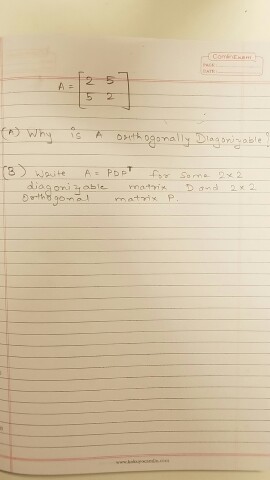 A = [ 2 5
5 2 ]
(A) Why is A orthogonally Diagonizable?
(B) Write A = PDPᵀ for some 2x2
diagonizable matrix D and 2x2
Orthogonal matrix P.